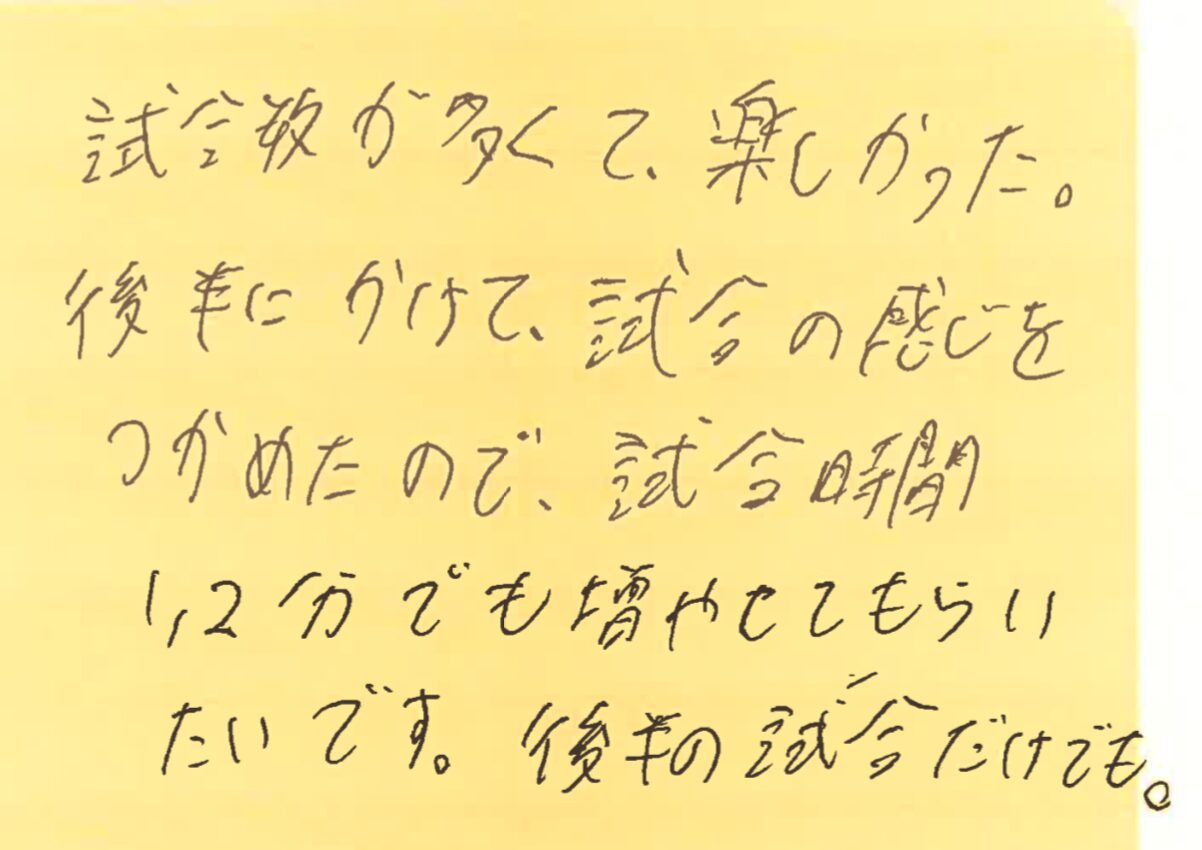 試合数が多くて、楽しかった。
後半にかけて、試合の感じを
つかめたので、試合時間
1,2分でも増やせてもらい
たいです。後半の試合だけでも。